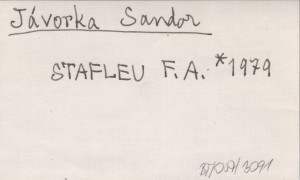 Jávorka Sandor
STAFLEU F.A. *1979
BT/OSA/3091